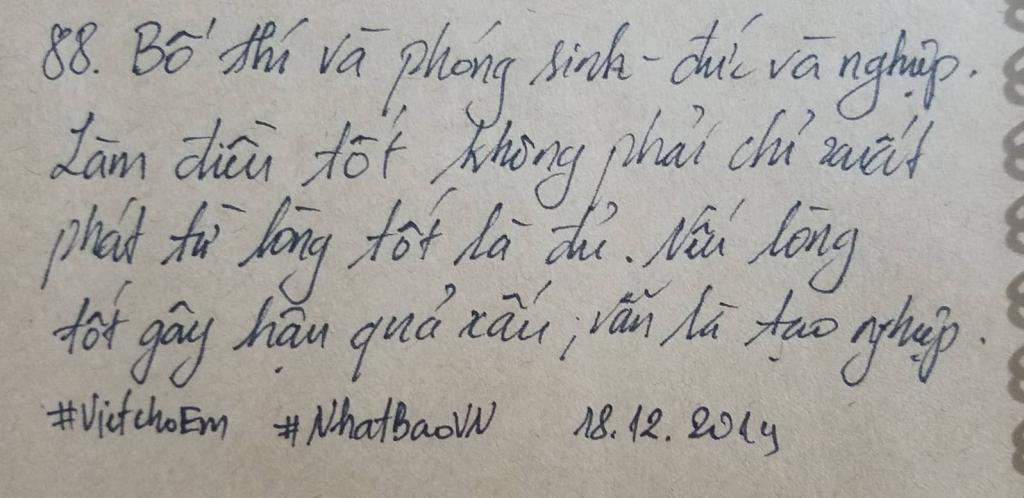 88. Bố thí và phóng sinh - đức và nghiệp.
Làm điều tốt không phải chỉ xuất
phát từ lòng tốt là đủ. Nếu lòng
tốt gây hậu quả xấu, vẫn là tạo nghiệp.
#VietchoEm #NhatBaoVN 18.12.2019